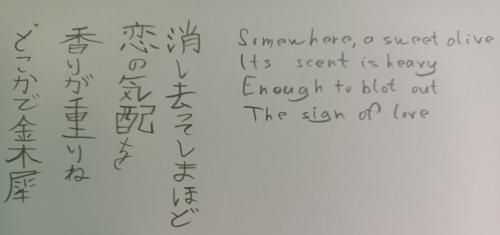 消し去ってしまほど
恋の気配を
香りが重りね
どこかで金木犀
Somewhere, a sweet olive
Its scent is heavy
Enough to blot out
The sign of love